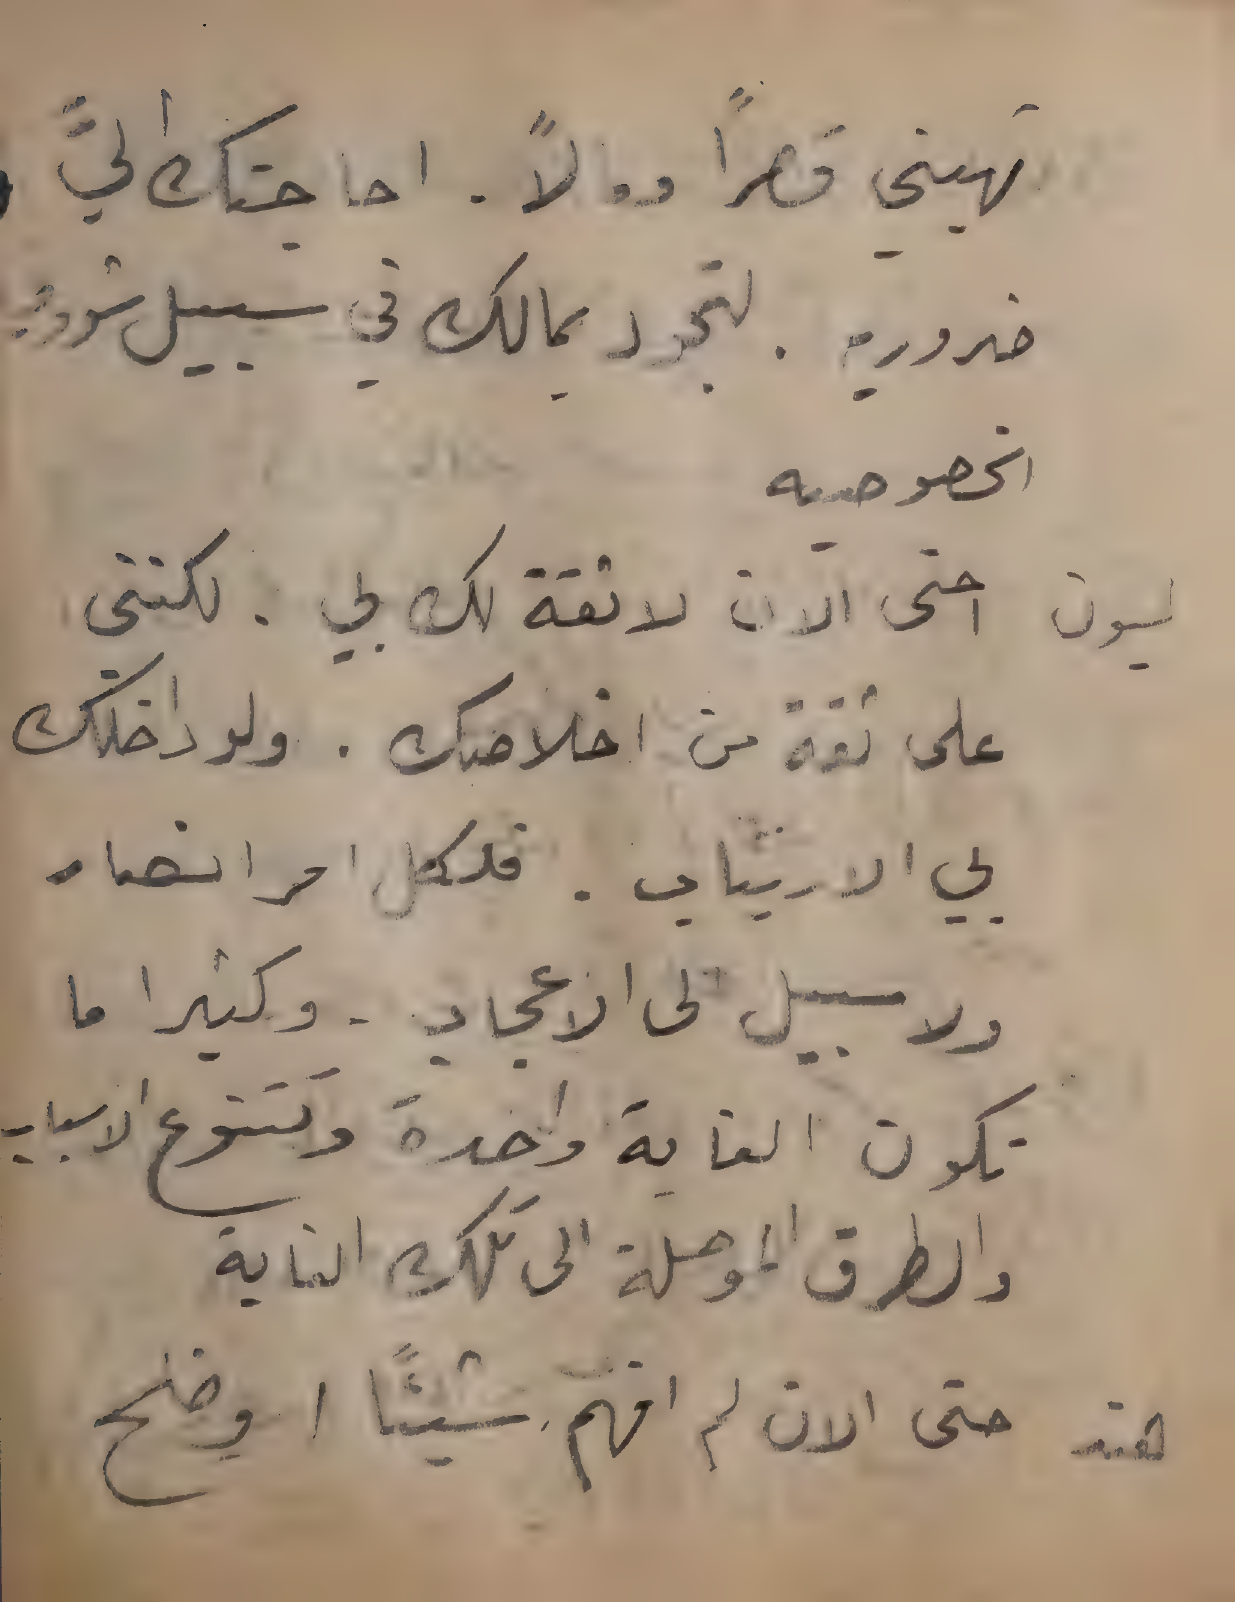 تهبني قصراً ومالاً. احاجتك اليَّ
ضروريه. لتجود بمالك في سبيل
الخصوصيه
ليون احتى الآن لا ثقة لك بي. لكنني
على ثقة من اخلاصك. ولو داخلك
بي الارتياب. فلكل امر انصار
ولا سبيل الى الاعجاب. وكثيرا ما
تكون الغاية واحدة وتتنوع الاسباب
والطرق الموصلة الى تلك الغاية
هند حتى الان لم افهم شيئًا اوضح